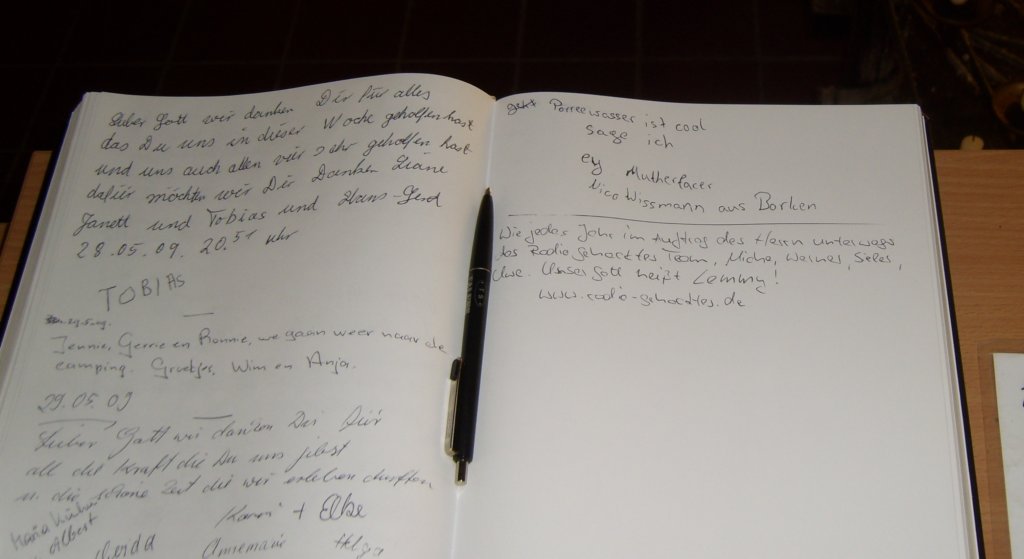 Lieber Gott wir danken Dir für alles
das Du uns in dieser Woche geholfen hast
und uns auch allen vier sehr geholfen hast
dafür möchten wir Dir Danken
Janett und Tobias und Hans-Gerd
28.05.09. 20.51 uhr
TOBIAS
Jennie, Gerrie en Ronnie, we gaan weer naar de
camping. Groetjes, Wim en Anja.
29.05.09
Lieber Gott wir danken Dir für
all die Kraft die Du uns jibst
u. die schöne Zeit die wir erleben durften
Karin + Elke
Maria
Albert
Annemarie Helga
Porreewasser ist cool
sage ich
ey Mutherfacer
Nico Wissmann aus Borken
Wie jedes Jahr im Auftrag des Herrn unterwegs
das Radio Gehacktes Team, Micha, Werner,
Uwe. Unser Gott heißt Lemmy!
www.radio-gehacktes.de